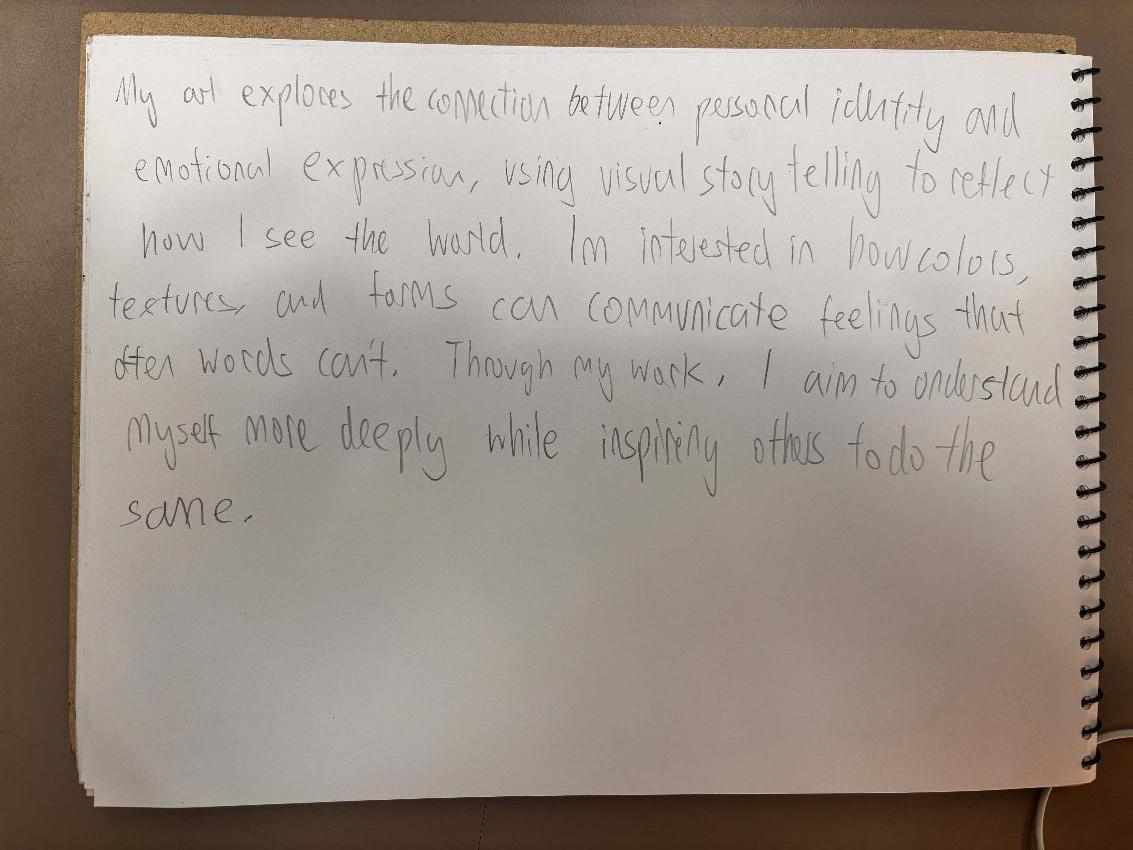 My art explores the connection between personal identity and
emotional expression, using visual story telling to reflect
how I see the world. Im interested in how colors,
textures, and forms can communicate feelings that
often words can't. Through my work, I aim to understand
myself more deeply while inspiring others to do the
same.